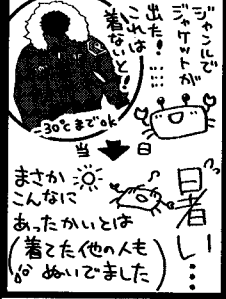 ジャンルで
ジャケットが
出た!……
これは
着ないと!
-30℃までok
当日
暑い…
まさか
こんなに
あったかいとは
(着てた他の人も
ぬいでました)